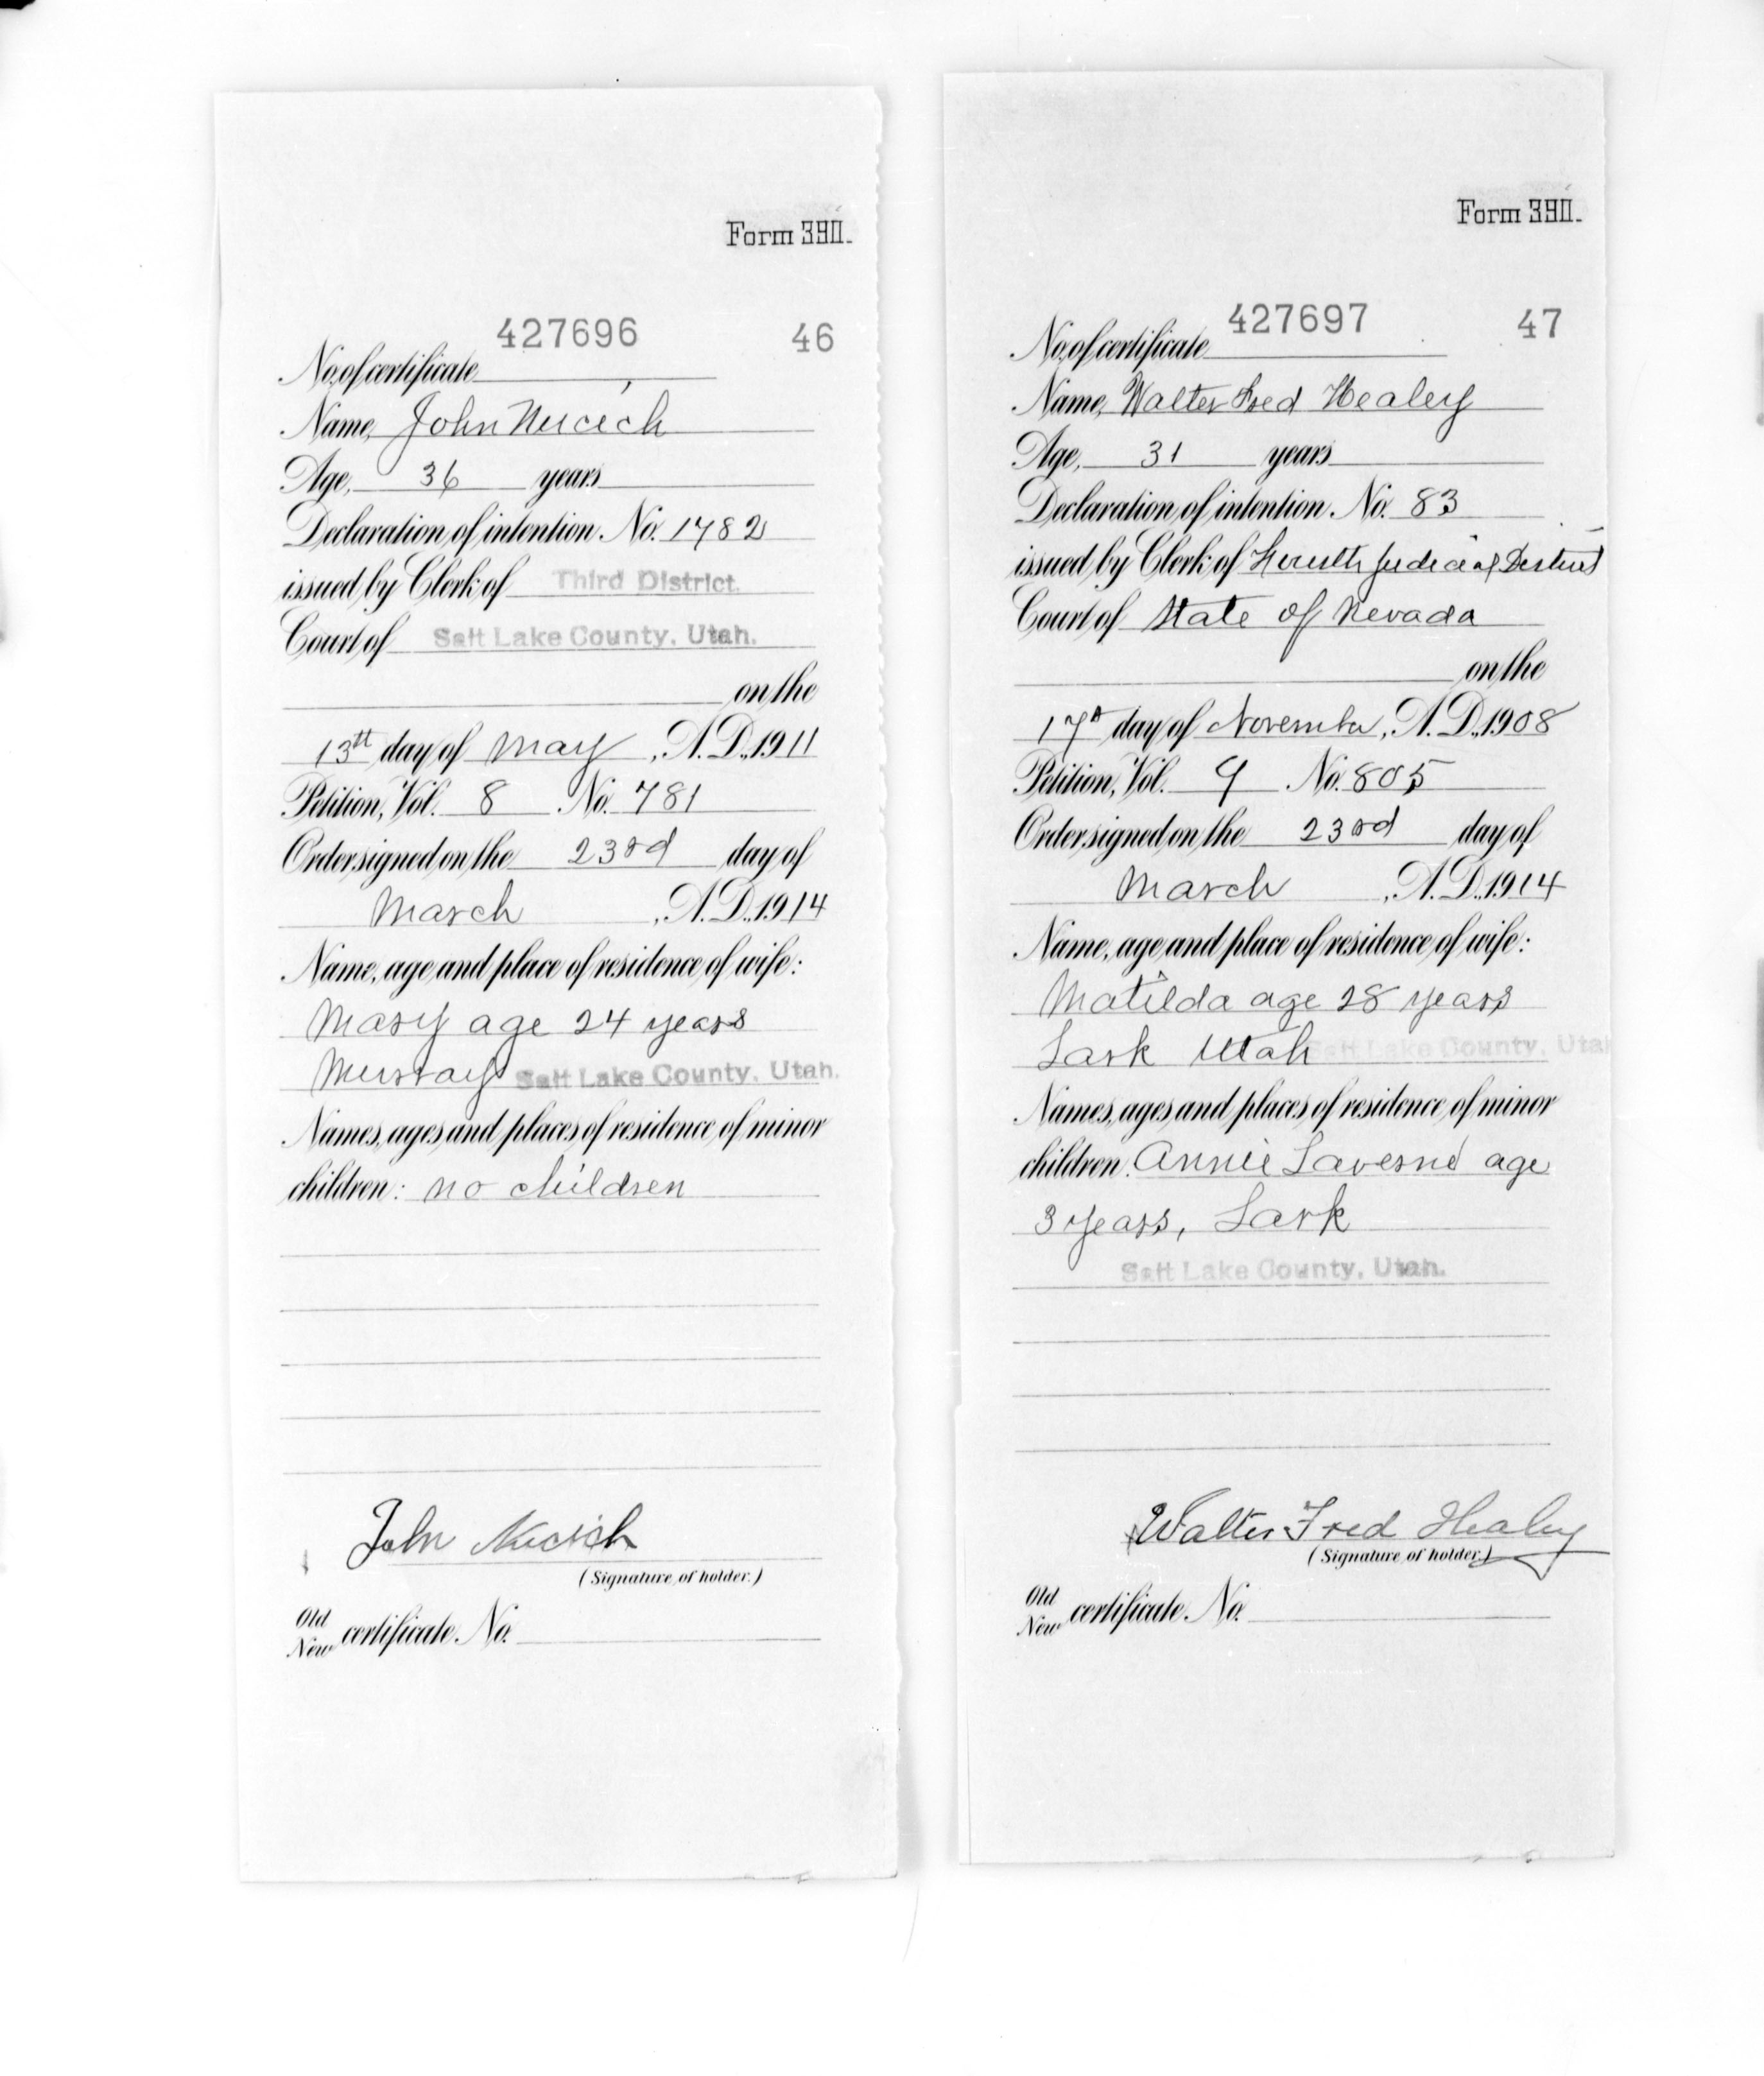 Form 390.
427696 46
No. of certificate
Name, John Nucich
Age, 36 years
Declaration of intention. No. 1782
issued by Clerk of Third District.
Court of Salt Lake County, Utah.
on the
13th day of May, A.D. 1911
Petition, Vol. 8 No. 781
Order signed on the 23rd day of
March, A.D. 1914
Name, age and place of residence of wife:
Mary age 24 years
Murray Salt Lake County, Utah.
Names, ages and places of residence of minor
children: no children
John Nucich
(Signature of holder.)
Old
New certificate. No.
Form 390.
427697 47
No. of certificate
Name, Walter Fred Healey
Age, 31 years
Declaration of intention. No. 83
issued by Clerk of Fourth Judicial District
Court of State of Nevada
on the
17th day of November, A.D. 1908
Petition, Vol. 9 No. 805
Order signed on the 23rd day of
March, A.D. 1914
Name, age and place of residence of wife:
Matilda age 28 years
Lark Utah Salt Lake County, Utah
Names, ages and places of residence of minor
children. Annie Laverne age
3 years, Lark
Salt Lake County, Utah.
Walter Fred Healey
(Signature of holder.)
Old
New certificate. No.